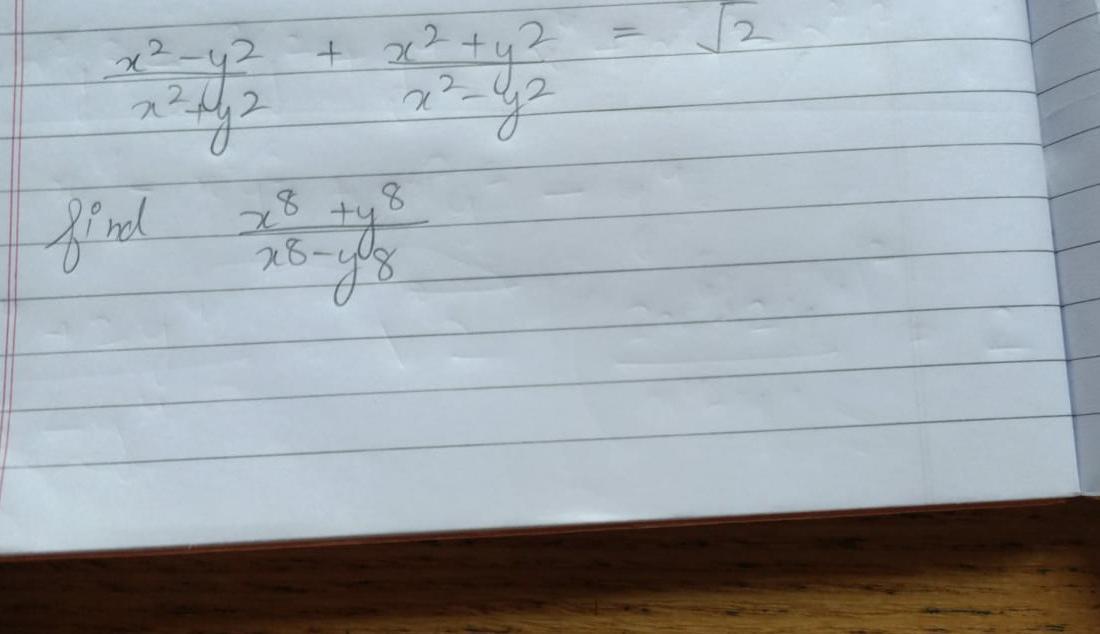 x²-y²/x²+y² + x²+y²/x²-y² = √2
find x⁸+y⁸/x⁸-y⁸